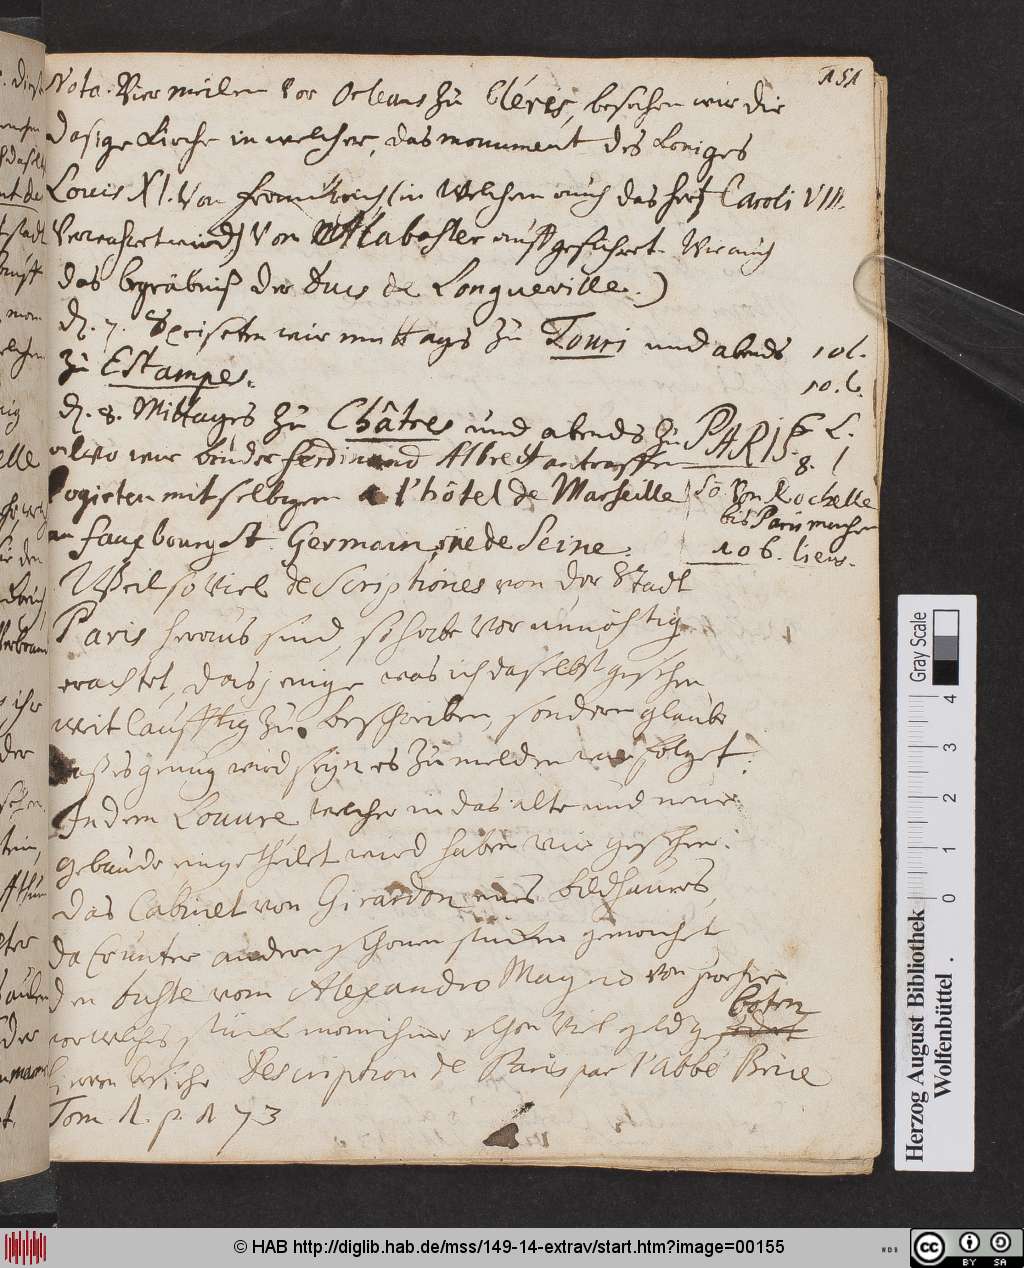 151
Nota. Vier meilen vor Orleans zu Cléris, besahen wir die
dasige Kirche in welcher, das monument des Koniges
Louis XI. von Franckreich (in welchem auch das hertz Caroli VIII.
verwahret wird) von Alabaster auffgeführet. Wie auch
das begräbniß der Ducs de Longueville.)
d. 7. Speiseten wir mittags zu Touri und abends 10 l.
zu Estampes. 10. l.
d. 8. Mittages zu Châtres und abends zu PARIS. 6 L.
allwo wir bruder Ferdinand Albrecht antraffen 8. l
logirten mit selbigem a l'hôtel de Marseille So. von Rochelle
au Fauxbourg St. Germain, rüe de Seine. bis Paris machen
106. lieus.
Weil so viel descriptiones von der Stadt
Paris heraus sind, so habe vor unnöhtig
erachtet, dasjenige was ich daselbst gesehen
weitläufftig zu beschreiben, sondern glaube
daß es genug wird seyn es zu melden wie folget:
In dem Louvre welcher in das alte und neue
gebäude eingetheilet wird haben wir gesehen:
Das Cabinet von Girardon eines bildhauers,
da Er unter andern schonen stücken gemachet
den buste vom Alexandro Magno von porfire
vor welches stück man ihme schon viel geldt geboten
hievon besiehe Description de Paris par l'abbé Brice
Tom. 1. p. 173
Herzog August Bibliothek
Wolfenbüttel
Gray Scale
0 1 2 3 4
© HAB http://diglib.hab.de/mss/149-14-extrav/start.htm?image=00155
WDB
cc BY SA